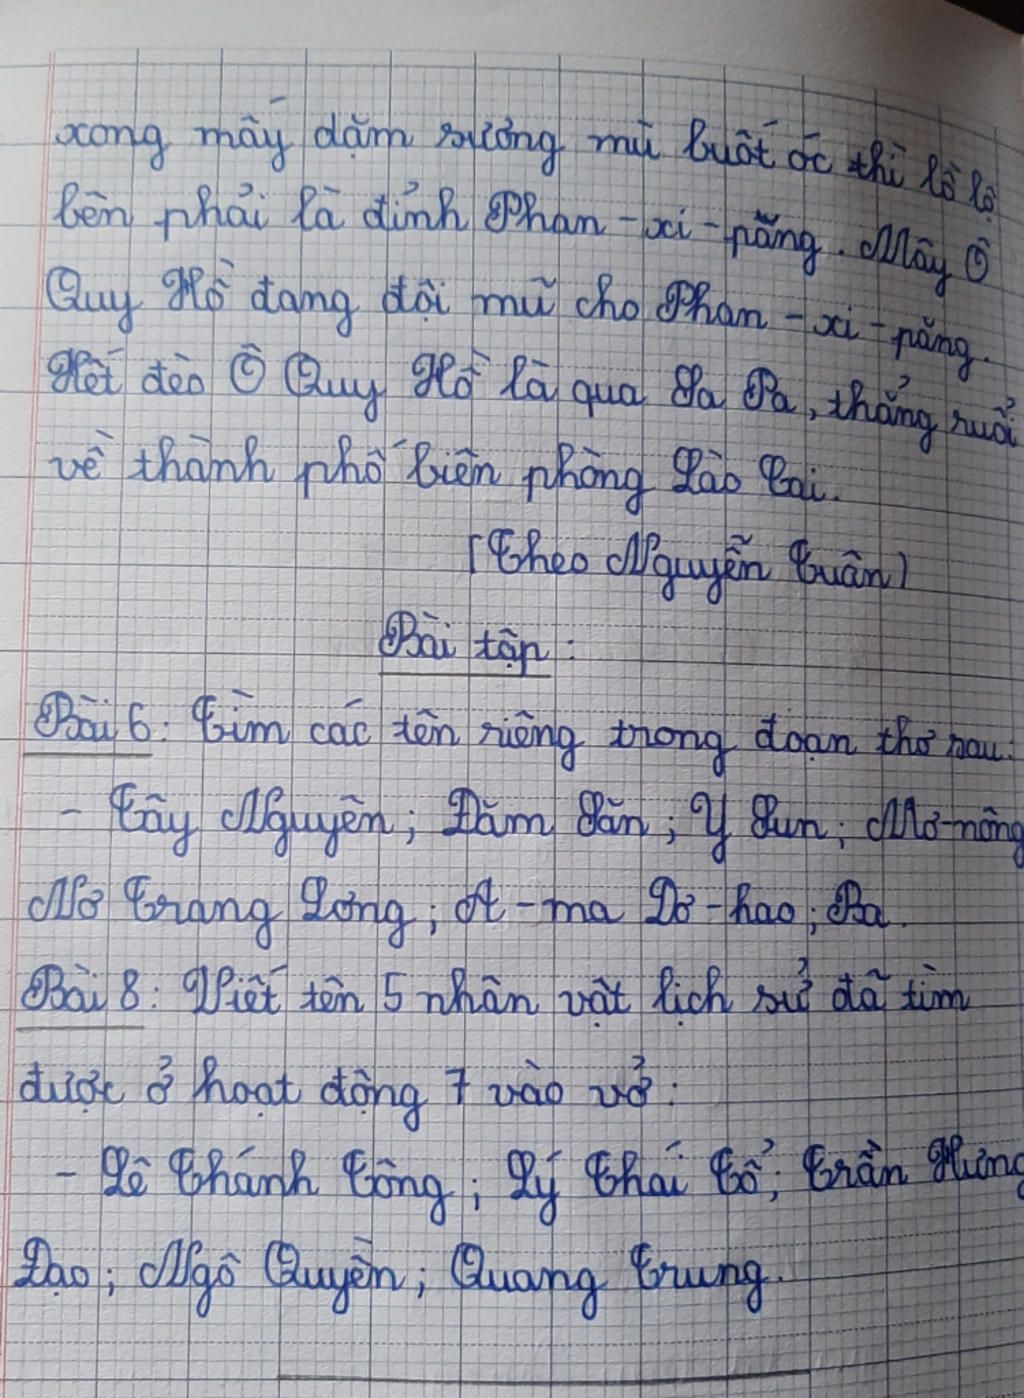 xong mấy dặm sương mù buốt óc thì lồ lộ
bên phải là đỉnh Phan-xi-păng. Mây Ô
Quy Hồ đang đội mũ cho Phan-xi-păng.
Hết đèo Ô Quy Hồ là qua Sa Pa, thẳng ruổi
về thành phố biên phòng Lào Cai.
(Theo Nguyễn Tuân)
Bài tập:
Bài 6: Tìm các tên riêng trong đoạn thơ sau:
- Tây Nguyên; Đăm Săn; Y Sun; Mơ-nông
Nơ Trang Lơng; A-ma Dơ-hao; Ba.
Bài 8: Viết tên 5 nhân vật lịch sử đã tìm
được ở hoạt động 7 vào vở:
- Lê Thánh Tông; Lý Thái Tổ; Trần Hưng
Đạo; Ngô Quyền; Quang Trung.